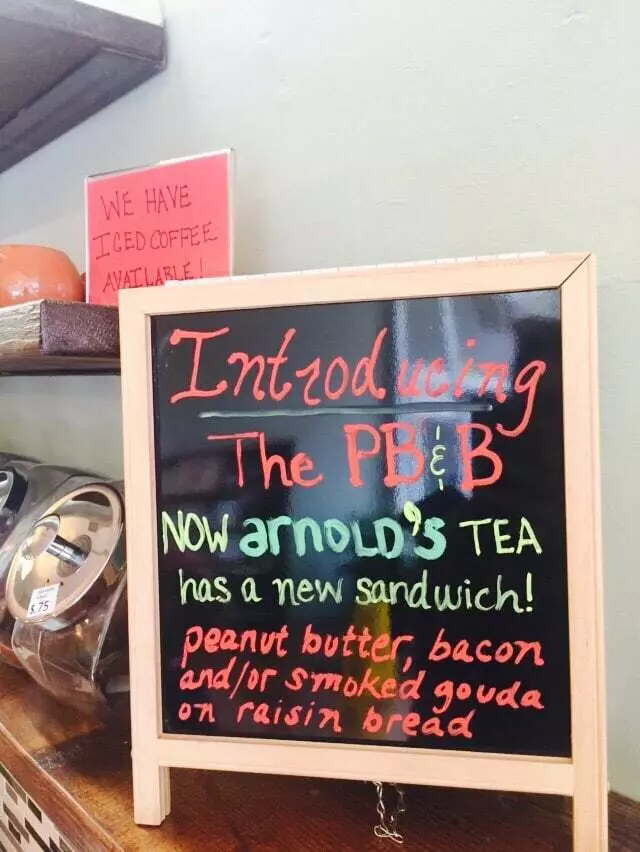 WE HAVE
ICED COFFEE
AVAILABLE!
Introducing
The PB & B
NOW arnOLD's TEA
has a new sandwich!
peanut butter, bacon
and/or smoked gouda
on raisin bread
$.75